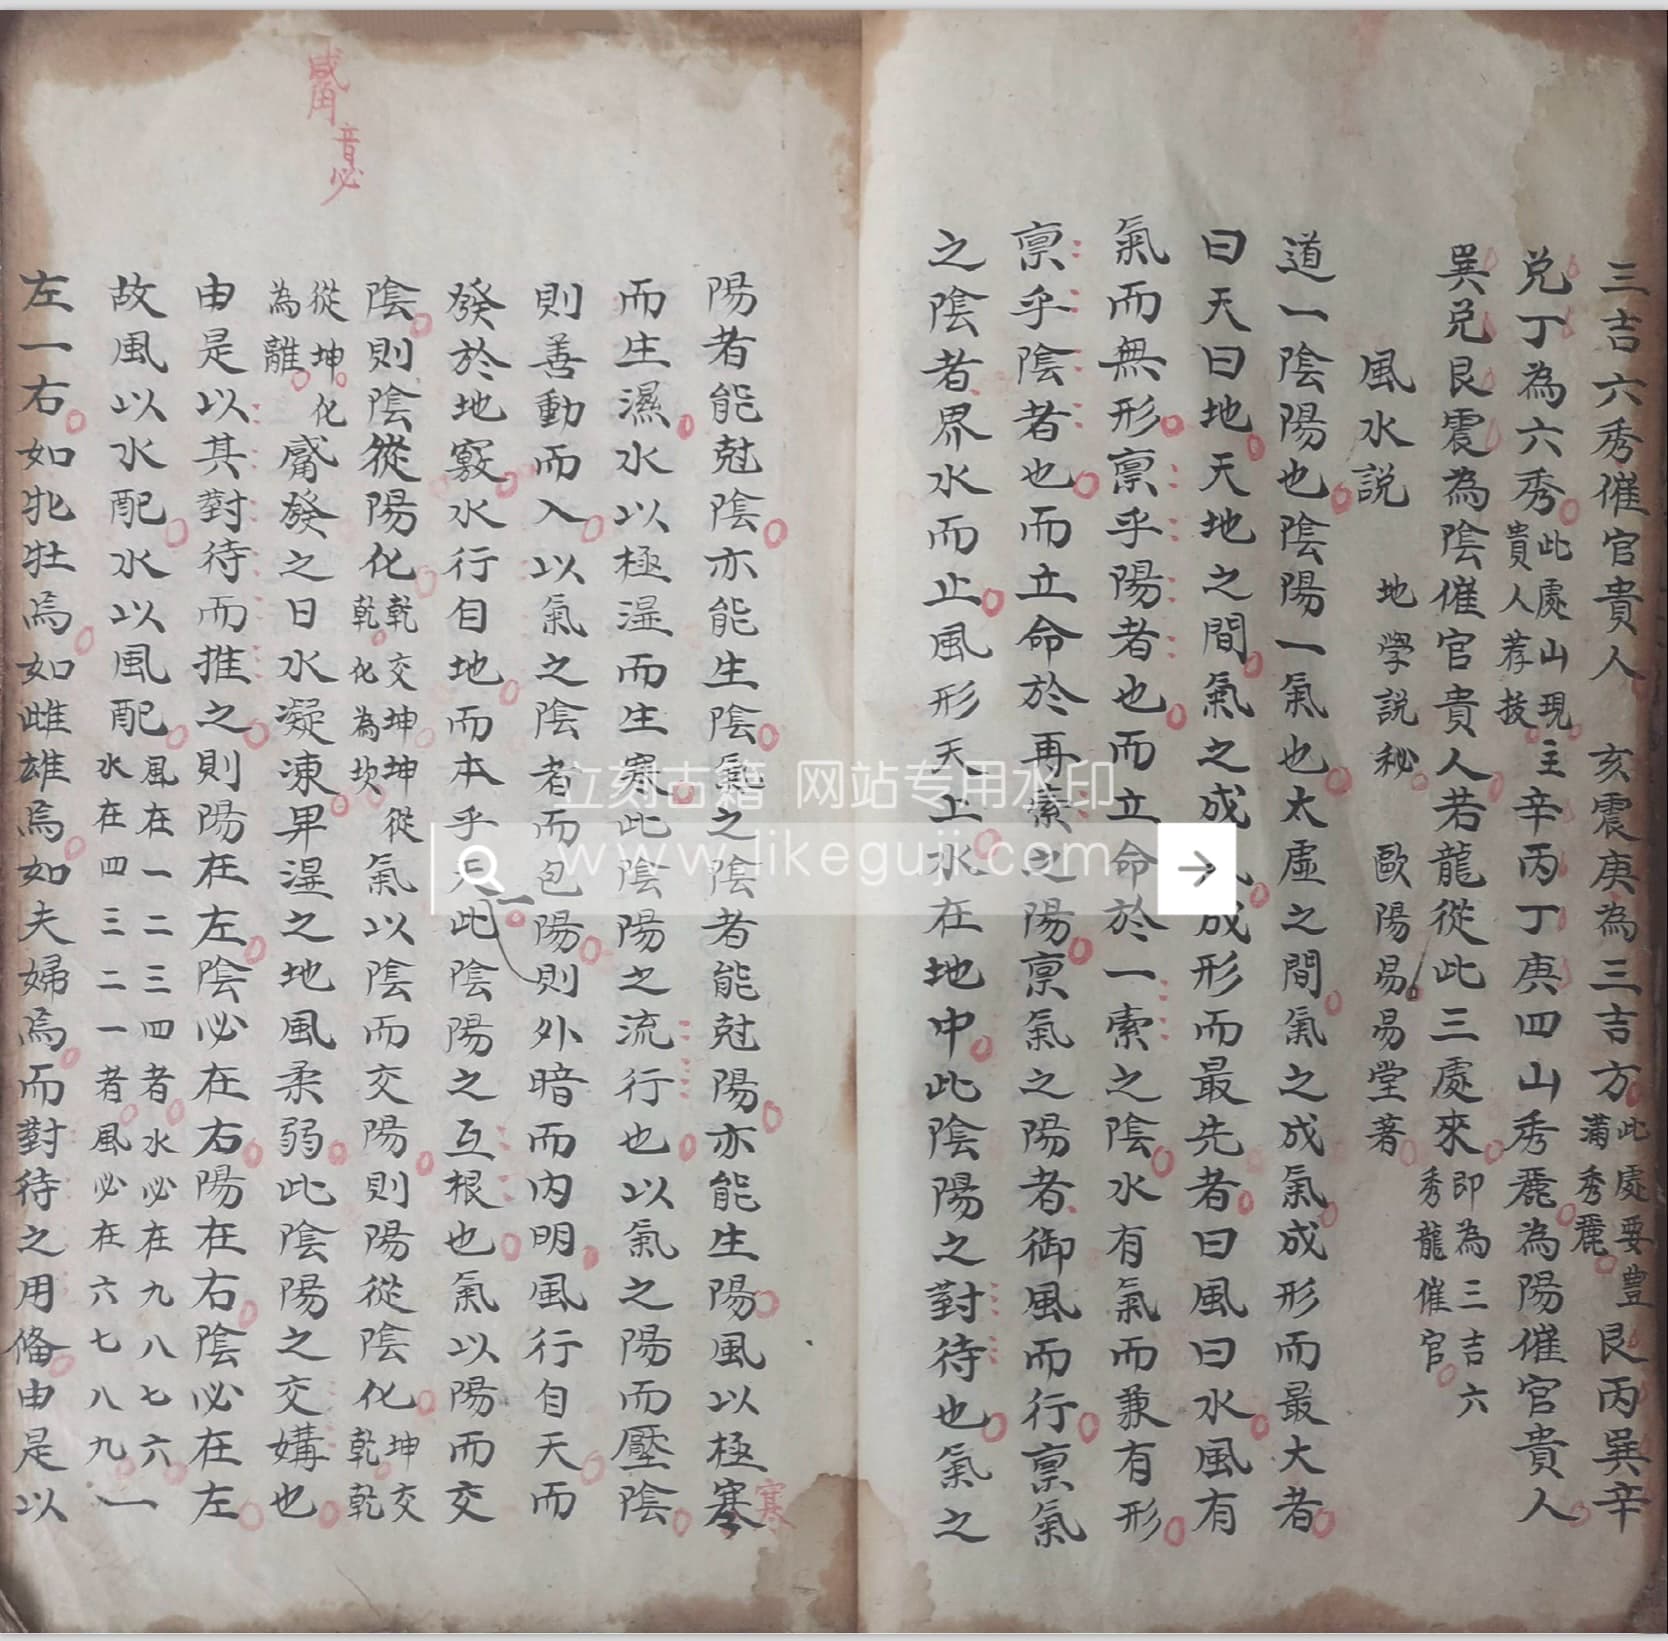 三吉六秀催官貴人　亥震庚為三吉方此處要豊滿秀麗艮丙巽辛
兑丁為六秀此處山現貴人荐技主辛丙丁庚四山秀麗為陽催官貴人
巽兑艮震為陰催官貴人若龍從此三處來即為三吉六秀龍催官
風水説　地學説秘　歐陽易易堂著
道一陰陽也陰陽一氣也太虛之間氣之成氣成形而最大者
曰天曰地天地之間氣之成氣成形而最先者曰風曰水風有
氣而無形禀乎陽者也而立命於一索之陰水有氣而兼有形
禀乎陰者也而立命於再索之陽禀氣之陽者御風而行禀氣
之陰者界水而止風形天上水在地中此陰陽之對待也氣之
陽者能尅陰亦能生陰氣之陰者能尅陽亦能生陽風以極寒
寒
而生濕水以極溼而生寒此陰陽之流行也以氣之陽而壓陰
則善動而入以氣之陰者而包陽則外暗而内明風行自天而
發於地竅水行自地而本乎天此陰陽之互根也氣以陽而交
陰則陰從陽化乾交坤坤從乾化為坎氣以陰而交陽則陽從陰化坤交乾乾
從坤化為離觱發之日水凝凍畢溼之地風柔弱此陰陽之交媾也
觱音必
由是以其對待而推之則陽在左陰必在右陽在右陰必在左
故風以水配水以風配風在一二三四者水必在九八七六水在四三二一者風必在六七八九一
左一右如牝牡焉如雌雄焉如夫婦焉而對待之用俻由是以
立刻古籍 网站专用水印
www.likeguji.com